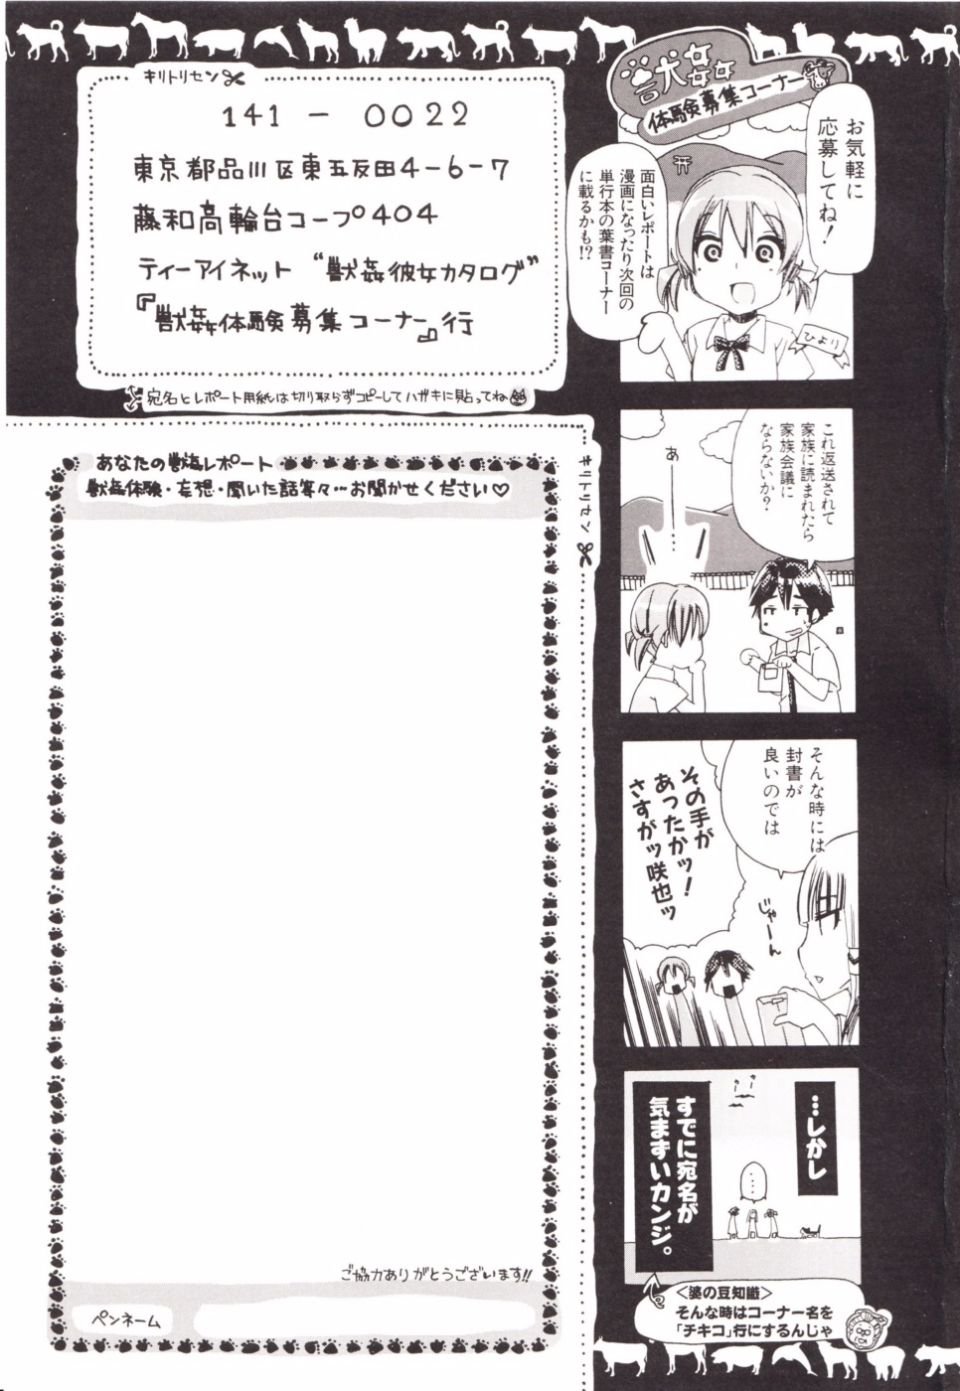 獣姦
体験募集コーナー
お気軽に
応募してね！
面白いレポートは
漫画になったり次回の
単行本の葉書コーナー
に載るかも!?
ひより
キリトリセン
141－0022
東京都品川区東五反田4-6-7
藤和高輪台コープ404
ティーアイネット “獣姦彼女カタログ”
『獣姦体験募集コーナー』行
宛名とレポート用紙は切り取らずコピーしてハガキに貼ってね
これ返送されて
家族に読まれたら
家族会議に
ならないか？
あ
――…
そんな時には
封書が
良いのでは
じゃーん
その手が
あったかッ！
さすがッ咲也ッ
…しかし
……
すでに宛名が
気まずいカンジ。
＜婆の豆知識＞
そんな時はコーナー名を
「チキコ」行にするんじゃ
キリトリセン
あなたの獣姦レポート
獣姦体験・妄想・聞いた話等々…お聞かせください♡
ご協力ありがとうございます!!
ペンネーム